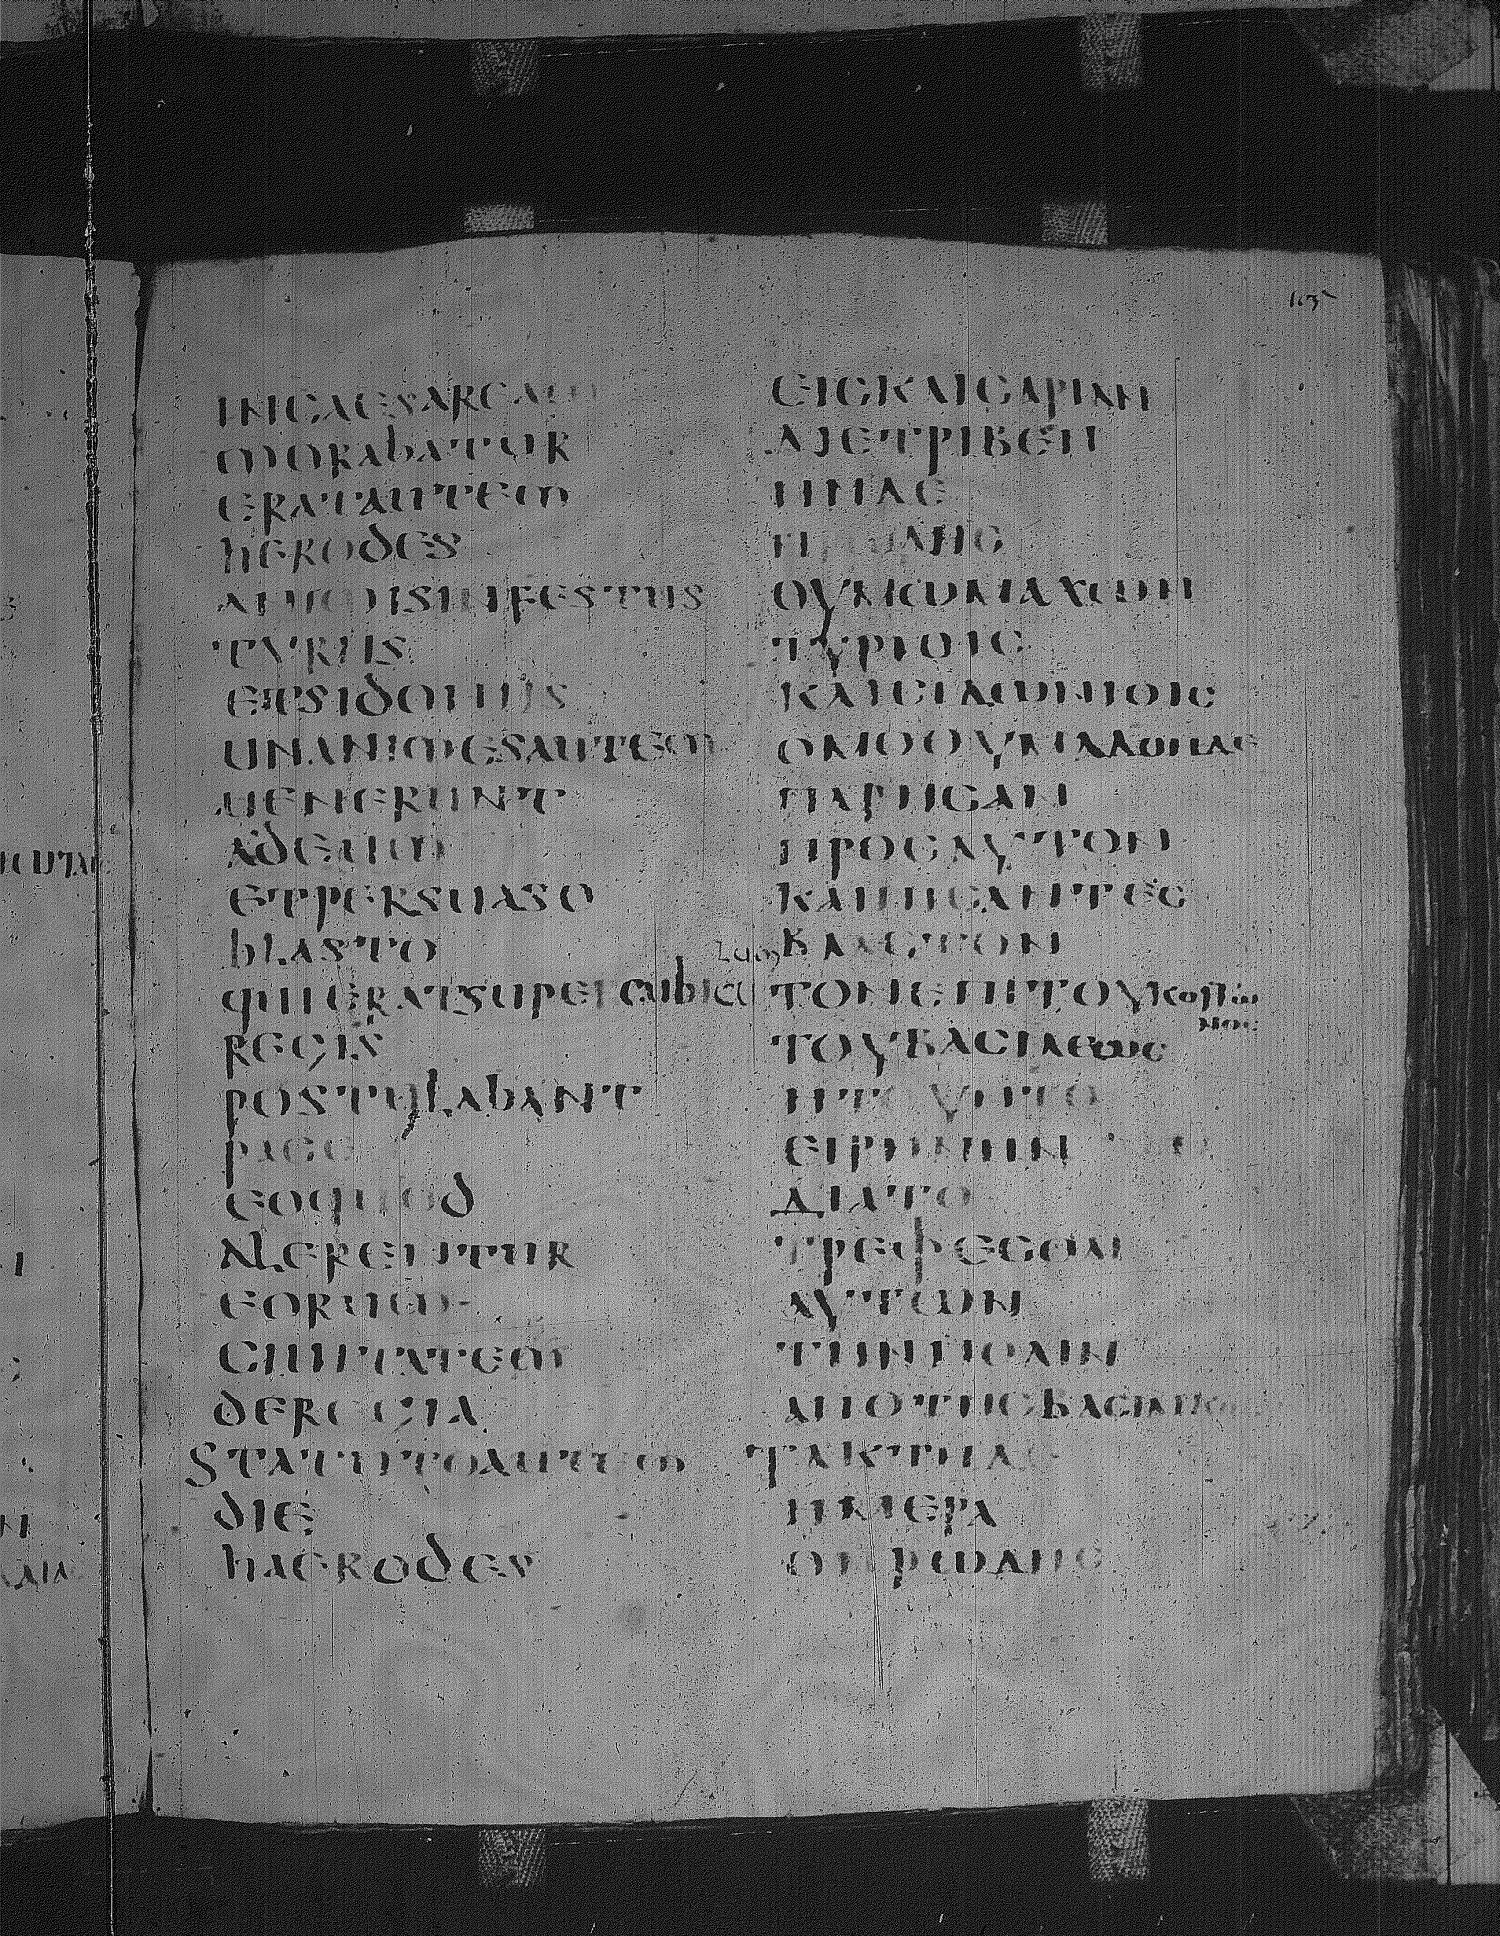 INCAESAREAM
MORABATUR
ERATAUTEM
hERODES
ANIMOISINFESTUS
TYRIIS
ETSIDONIIS
UNANIMESAUTEM
UENERUNT
ADEUM
ETPERSUASO
bLASTO
QUIERATSUPERCUbICU
LUM
REGIS
POSTULAbANT
PACE
EOQUOD
ALERENTUR
EORUM
CIUITATEM
DEREGIA
STATUTOAUTEM
DIE
hAERODES
ΕΙϹΚΑΙϹΑΡΙΑΝ
ΔΙΕΤΡΙΒΕΝ
ΗΝΔΕ
ΗΡΩΔΗϹ
ΘΥΜΩΜΑΧΩΝ
ΤΥΡΙΟΙϹ
ΚΑΙϹΙΔΩΝΙΟΙϹ
ΟΜΟΘΥΜΑΔΩΝΔΕ
ΠΑΡΗϹΑΝ
ΠΡΟϹΑΥΤΟΝ
ΚΑΙΠΙϹΑΝΤΕϹ
ΒΛΑϹΤΟΝ
ΤΟΝΕΠΙΤΟΥΚΟΙΤΩ
ΝΟϹ
ΤΟΥΒΑϹΙΛΕΩϹ
ΗΤΟΥΝΤΟ
ΕΙΡΗΝΗΝ
ΔΙΑΤΟ
ΤΡΕΦΕϹΘΑΙ
ΑΥΤΩΝ
ΤΗΝΠΟΛΙΝ
ΑΠΟΤΗϹΒΑϹΙΛΙΚΗϹ
ΤΑΚΤΗΔΕ
ΗΜΕΡΑ
ΟΗΡΩΔΗϹ